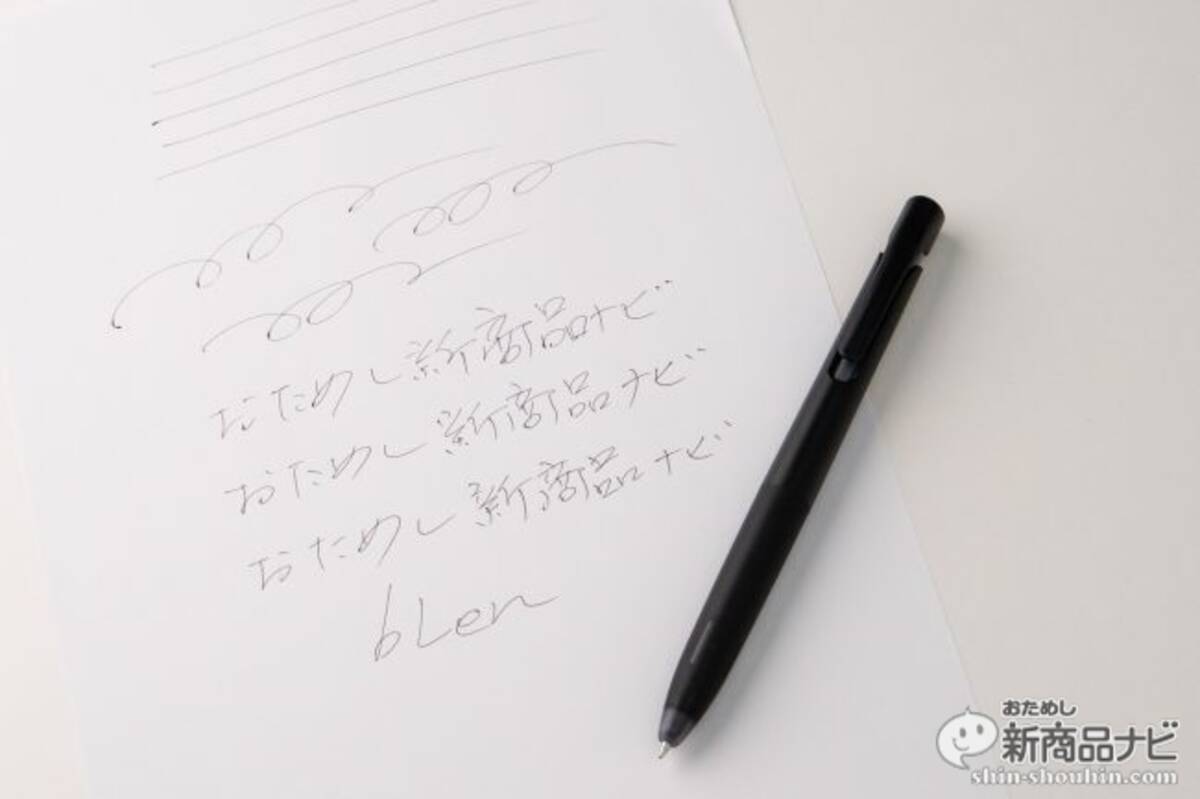 おためし新商品ナビ
おためし新商品ナビ
おためし新商品ナビ
bLen
おためし
新商品ナビ
shin-shouhin.com